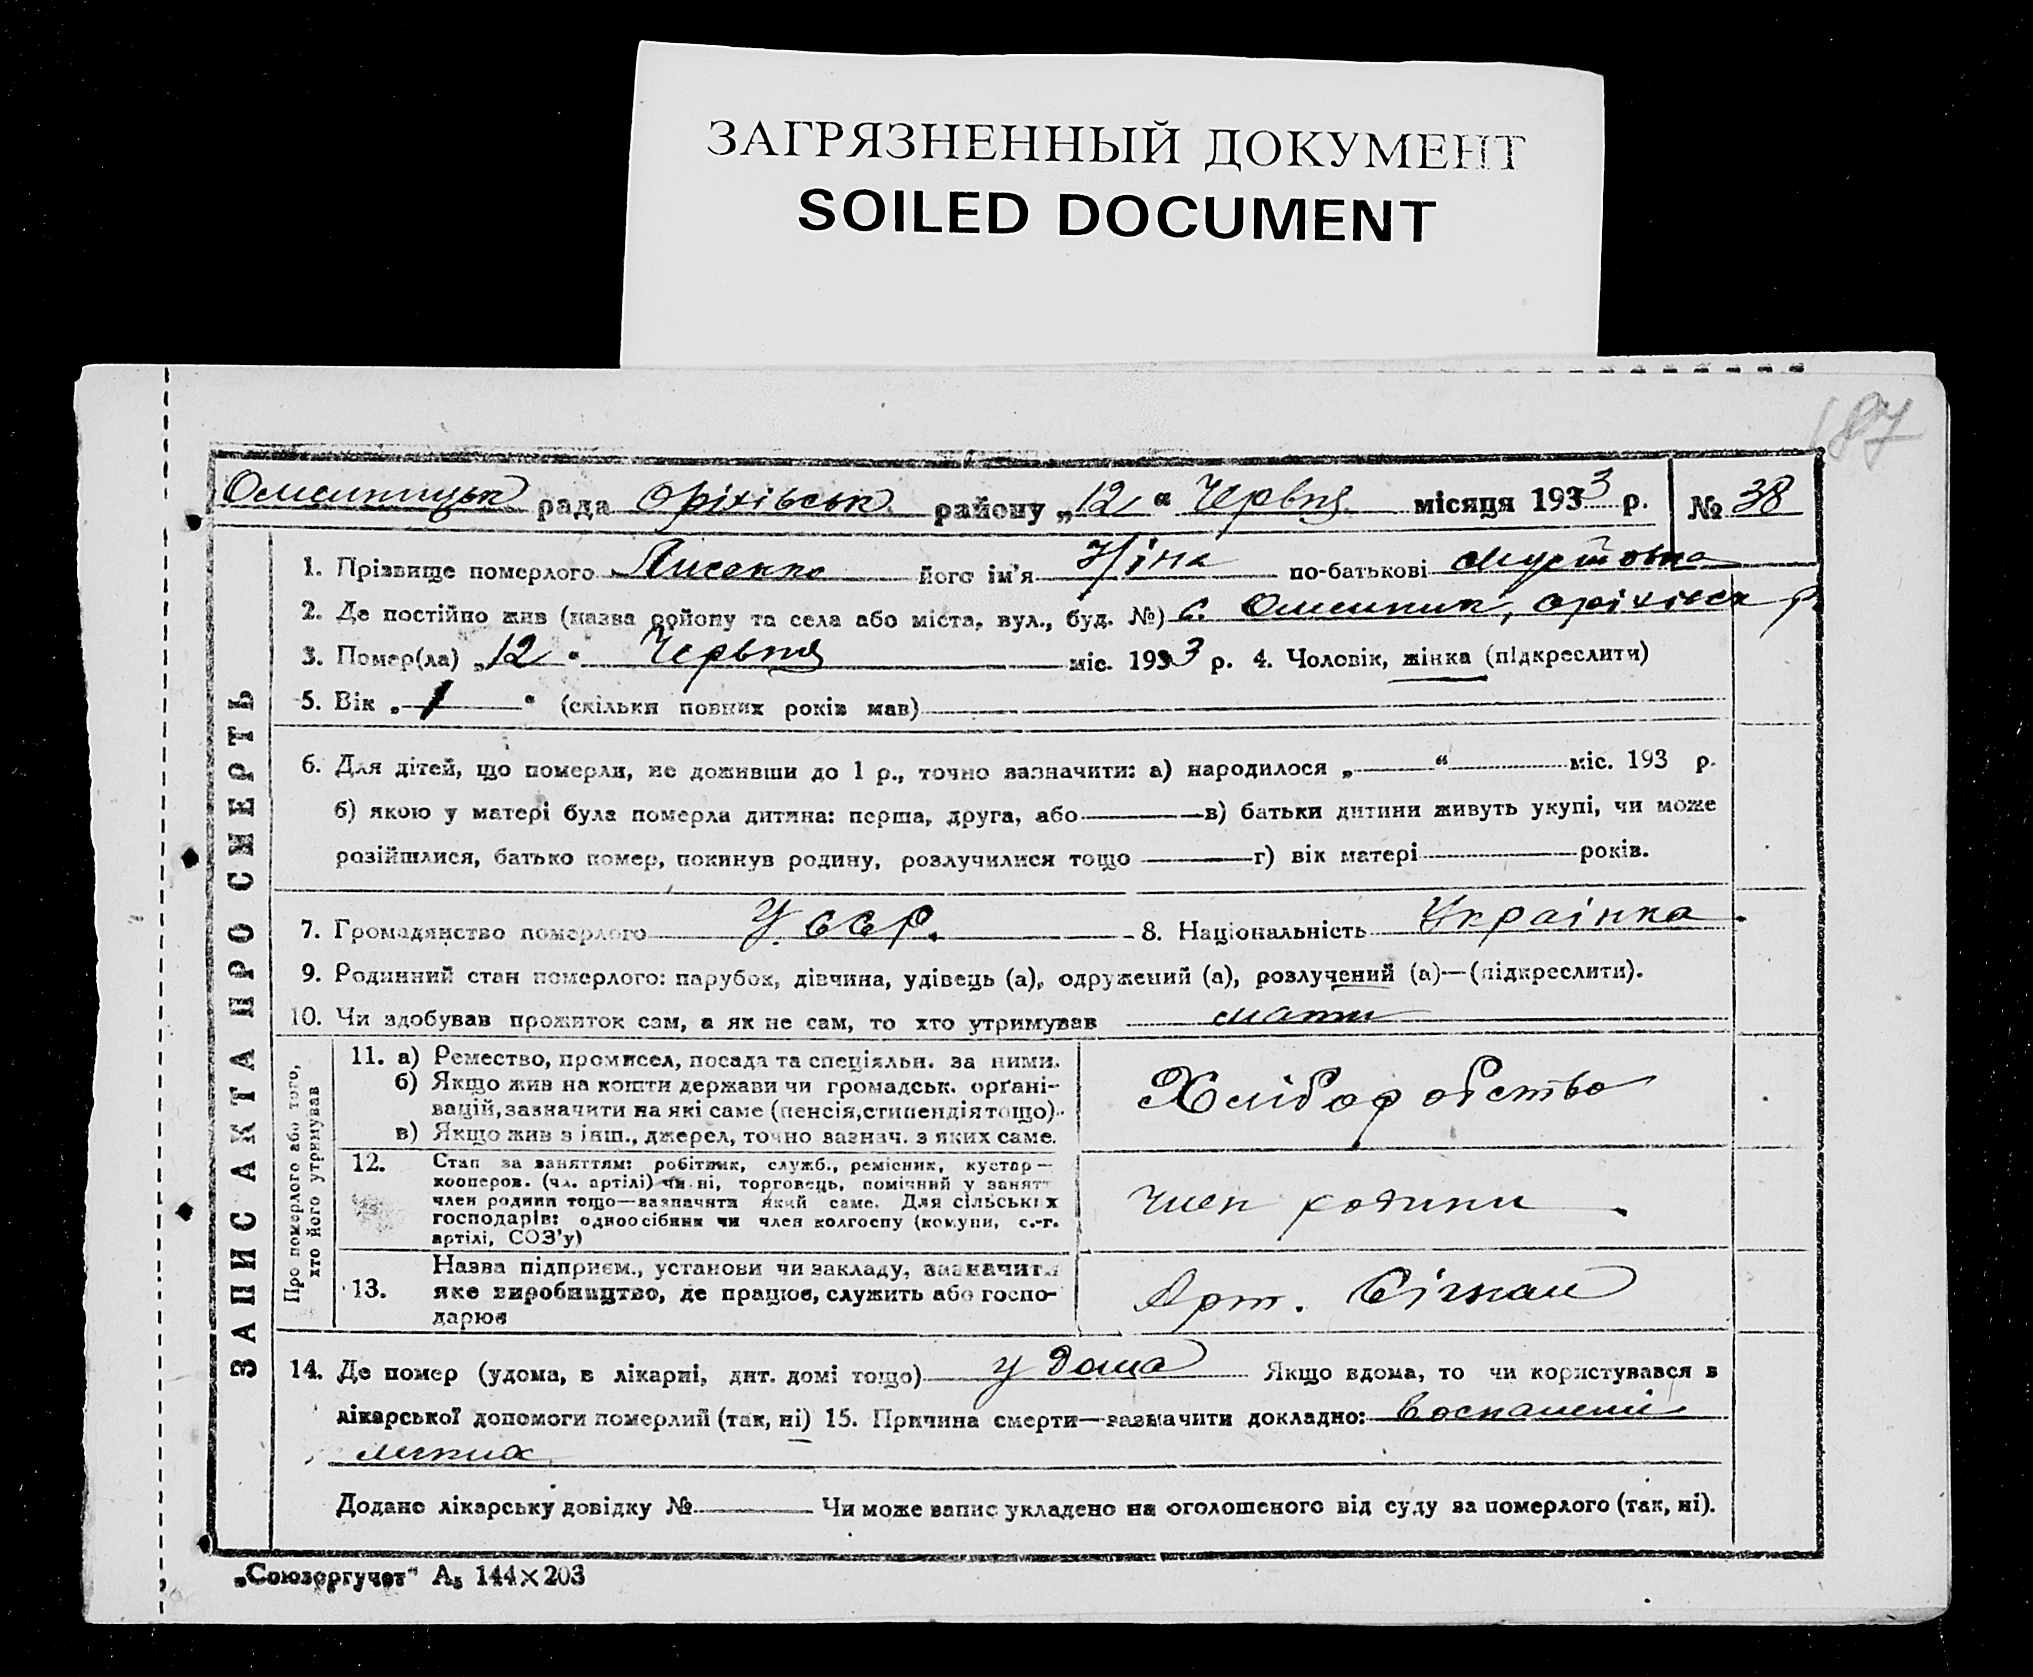 ЗАГРЯЗНЕННЫЙ ДОКУМЕНТ
SOILED DOCUMENT
187
рада Оріхівськ. району „12“ Червня місяця 1933 р. № 38
ЗАПИС АКТА ПРО СМЕРТЬ
1. Прізвище померлого Лисенко його ім'я Ніна по-батькові
2. Де постійно жив (назва району та села або міста, вул., буд. №) с. Омельник, Оріхівськ р.
3. Помер(ла) „12“ Червня міс. 1933 р. 4. Чоловік, жінка (підкреслити)
5. Вік „1“ (скільки повних років мав)
6. Для дітей, що померли, не доживши до 1 р., точно зазначити: а) народилося „ “ міс. 193 р.
б) якою у матері була померла дитина: перша, друга, або в) батьки дитини живуть укупі, чи може
розійшлися, батько помер, покинув родину, розлучилися тощо г) вік матері років.
7. Громадянство померлого У.ССР. 8. Національність Українка
9. Родинний стан померлого: парубок, дівчина, удівець (а), одружений (а), розлучений (а)—(підкреслити).
10. Чи здобував прожиток сам, а як не сам, то хто утримував мати
Про померлого або того,
хто його утримував
11. а) Ремество, промисел, посада та спеціяльн. за ними.
б) Якщо жив на кошти держави чи громадськ. орґані-
зацій, зазначити на які саме (пенсія, стипендія тощо).
в) Якщо жив з інш., джерел, точно зазнач. з яких саме.
Хліборобство
12. Стан за заняттям: робітник, служб., ремісник, кустар—
кооперов. (чл. артілі) чи ні, торговець, помічний у занятт
член родини тощо—зазначити який саме. Для сільських
господарів: одноосібник чи член колгоспу (комуни, с.-г.
артілі, СОЗ'у)
Член родини
13. Назва підприєм., установи чи закладу, зазначити
яке виробництво, де працює, служить або госпо-
дарює
Арт. Сігнал
14. Де помер (удома, в лікарні, дит. домі тощо) у дома Якщо вдома, то чи користувався в
лікарської допомоги померлий (так, ні) 15. Причина смерти—зазначити докладно: Воспаление
легких
Додано лікарську довідку № Чи може запис укладено на оголошеного від суду за померлого (так, ні).
„Союзоргучет“ А₅ 144×203